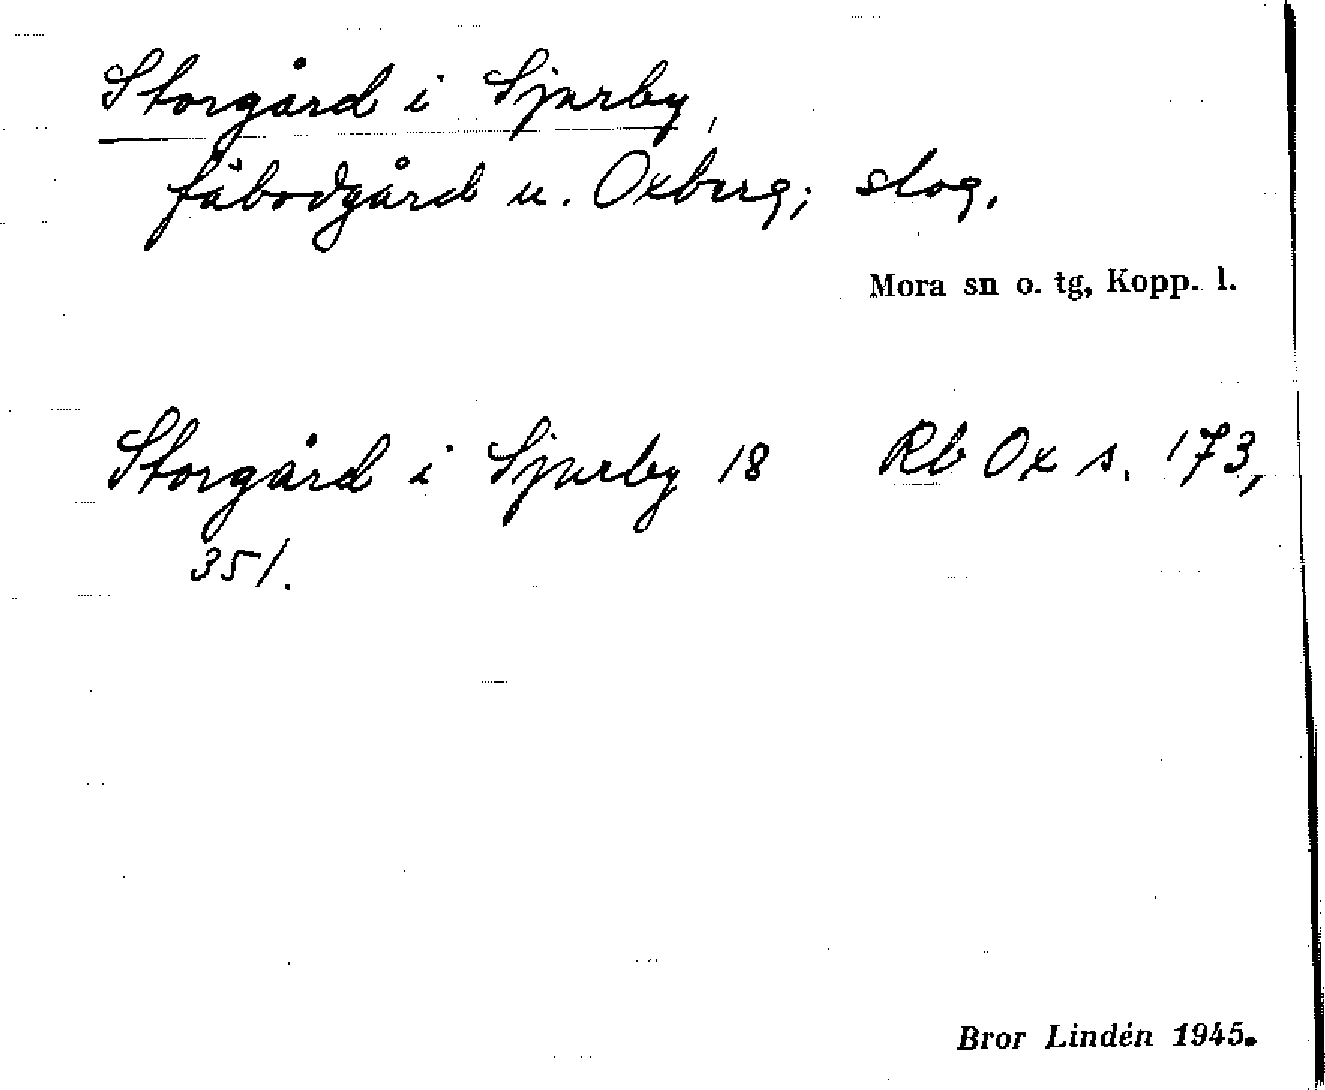 Storgård i Sjurby,
fäbodgård u. Oxberg; slog.
Mora sn o. tg, Kopp. l.
Storgård i Sjurby 18 Rb Ox s. 173,
351.
Bror Lindén 1945.